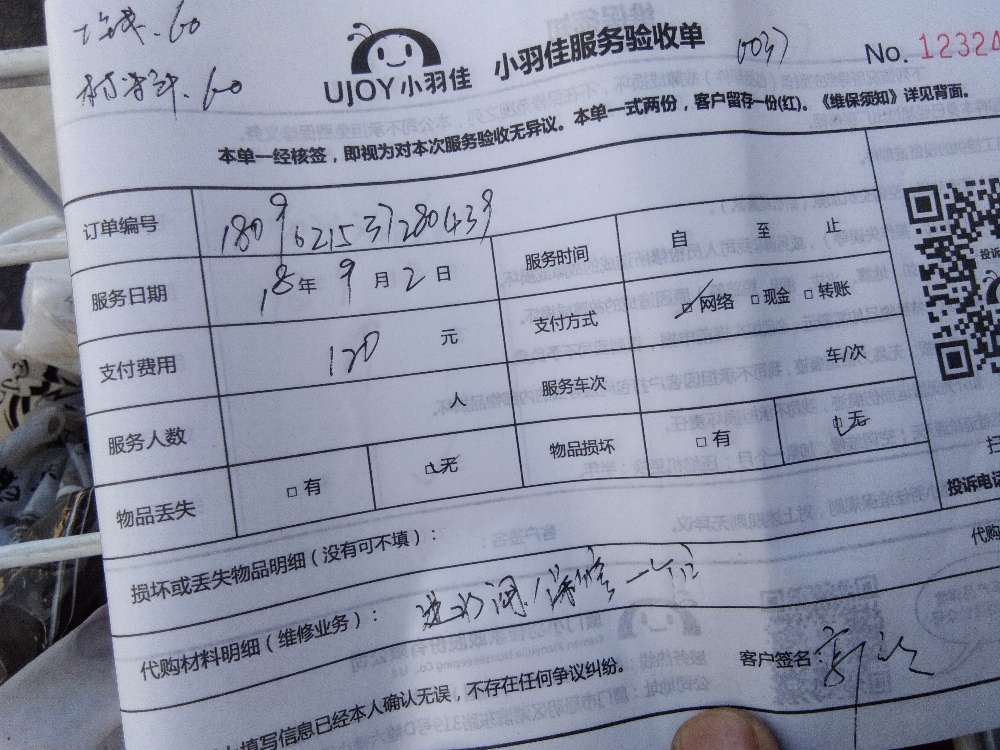 60
60
UJOY小羽佳
小羽佳服务验收单
No. 12324
本单一经核签，即视为对本次服务验收无异议。本单一式两份，客户留存一份(红)。《维保须知》详见背面。
订单编号
服务时间 自 至 止
服务日期 18年 9月 2日
支付方式 网络 □现金 □转账
支付费用 120 元
服务车次 车/次
服务人数 人
物品损坏 □有 无
物品丢失 □有 无
投诉
扫
投诉电话
损坏或丢失物品明细（没有可不填）：
代购
代购材料明细（维修业务）： 进水阀/保修一个月
客户签名:
填写信息已经本人确认无误，不存在任何争议纠纷。